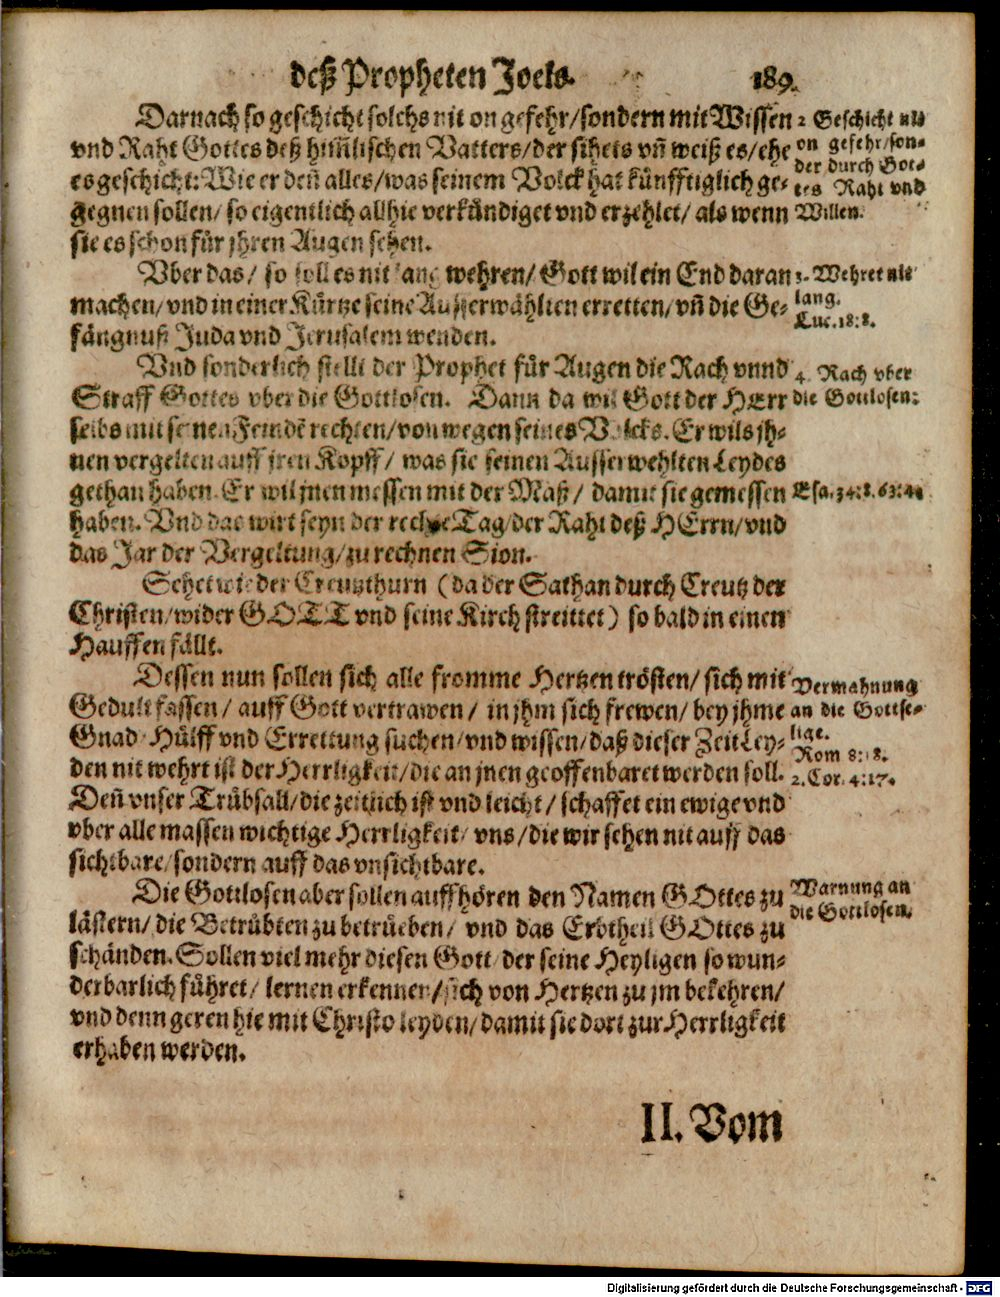 deß Propheten Joels.
189.
Darnach so geschicht solchs nit on gefehr/sondern mit Wissen
vnd Raht Gottes deß him̃lischen Vatters/der sihets vñ weiß es/ehe
es geschicht: Wie er deñ alles/was seinem Volck hat künfftiglich ge-
gegnen sollen/ so eigentlich allhie verkündiget vnd erzehlet/ als wenn
sie es schon für jhren Augen sehen.
2 Geschicht nit
on gefehr/son-
der durch Got-
tes Raht vnd
Willen.
Vber das/ so soll es nit lang wehren/ Gott wil ein End daran
machen/vnd in einer Kürtze seine Ausserwählten erretten/vñ die Ge-
fängnuß Juda vnd Jerusalem wenden.
3. Wehret nit
lang.
Luc. 18:8.
Vnd sonderlich stellt der Prophet für Augen die Rach vnnd
Straff Gottes vber die Gottlosen. Dann da wil Gott der HErr
selbs mit seinen Feindẽ rechten/von wegen seines Volcks. Er wils jh-
nen vergelten auff jren Kopff/ was sie seinen Ausserwehlten Leydes
gethan haben. Er wil jnen messen mit der Maß/ damit sie gemessen
haben. Vnd das wirt seyn der rechte Tag/der Raht deß HErrn/vnd
das Jar der Vergeltung/zu rechnen Sion.
4. Rach vber
die Gottlosen:
Esa. 34:8. 63:4.
Sehet wie der Creutzthurn (da der Sathan durch Creutz der
Christen/wider GOTT vnd seine Kirch streittet) so bald in einen
Hauffen fällt.
Dessen nun sollen sich alle fromme Hertzen trösten/ sich mit
Gedult fassen/ auff Gott vertrawen/ in jhm sich frewen/ bey jhme
Gnad/ Hülff vnd Errettung suchen/vnd wissen/daß dieser Zeit Ley-
den nit wehrt ist der Herrligkeit/die an jnen geoffenbaret werden soll.
Deñ vnser Trübsall/die zeitlich ist vnd leicht/ schaffet ein ewige vnd
vber alle massen wichtige Herrligkeit/ vns/die wir sehen nit auff das
sichtbare/sondern auff das vnsichtbare.
Vermahnung
an die Gottse-
lige.
Rom 8:18.
2. Cor. 4:17.
Die Gottlosen aber sollen auffhören den Namen GOttes zu
lästern/ die Betrübten zu betrüeben/ vnd das Erbtheil GOttes zu
schänden. Sollen viel mehr diesen Gott/ der seine Heyligen so wun-
derbarlich führet/ lernen erkennen/sich von Hertzen zu jm bekehren/
vnd denn geren hie mit Christo leyden/damit sie dort zur Herrligkeit
erhaben werden.
Warnung an
die Gottlosen.
II. Vom
Digitalisierung gefördert durch die Deutsche Forschungsgemeinschaft - DFG